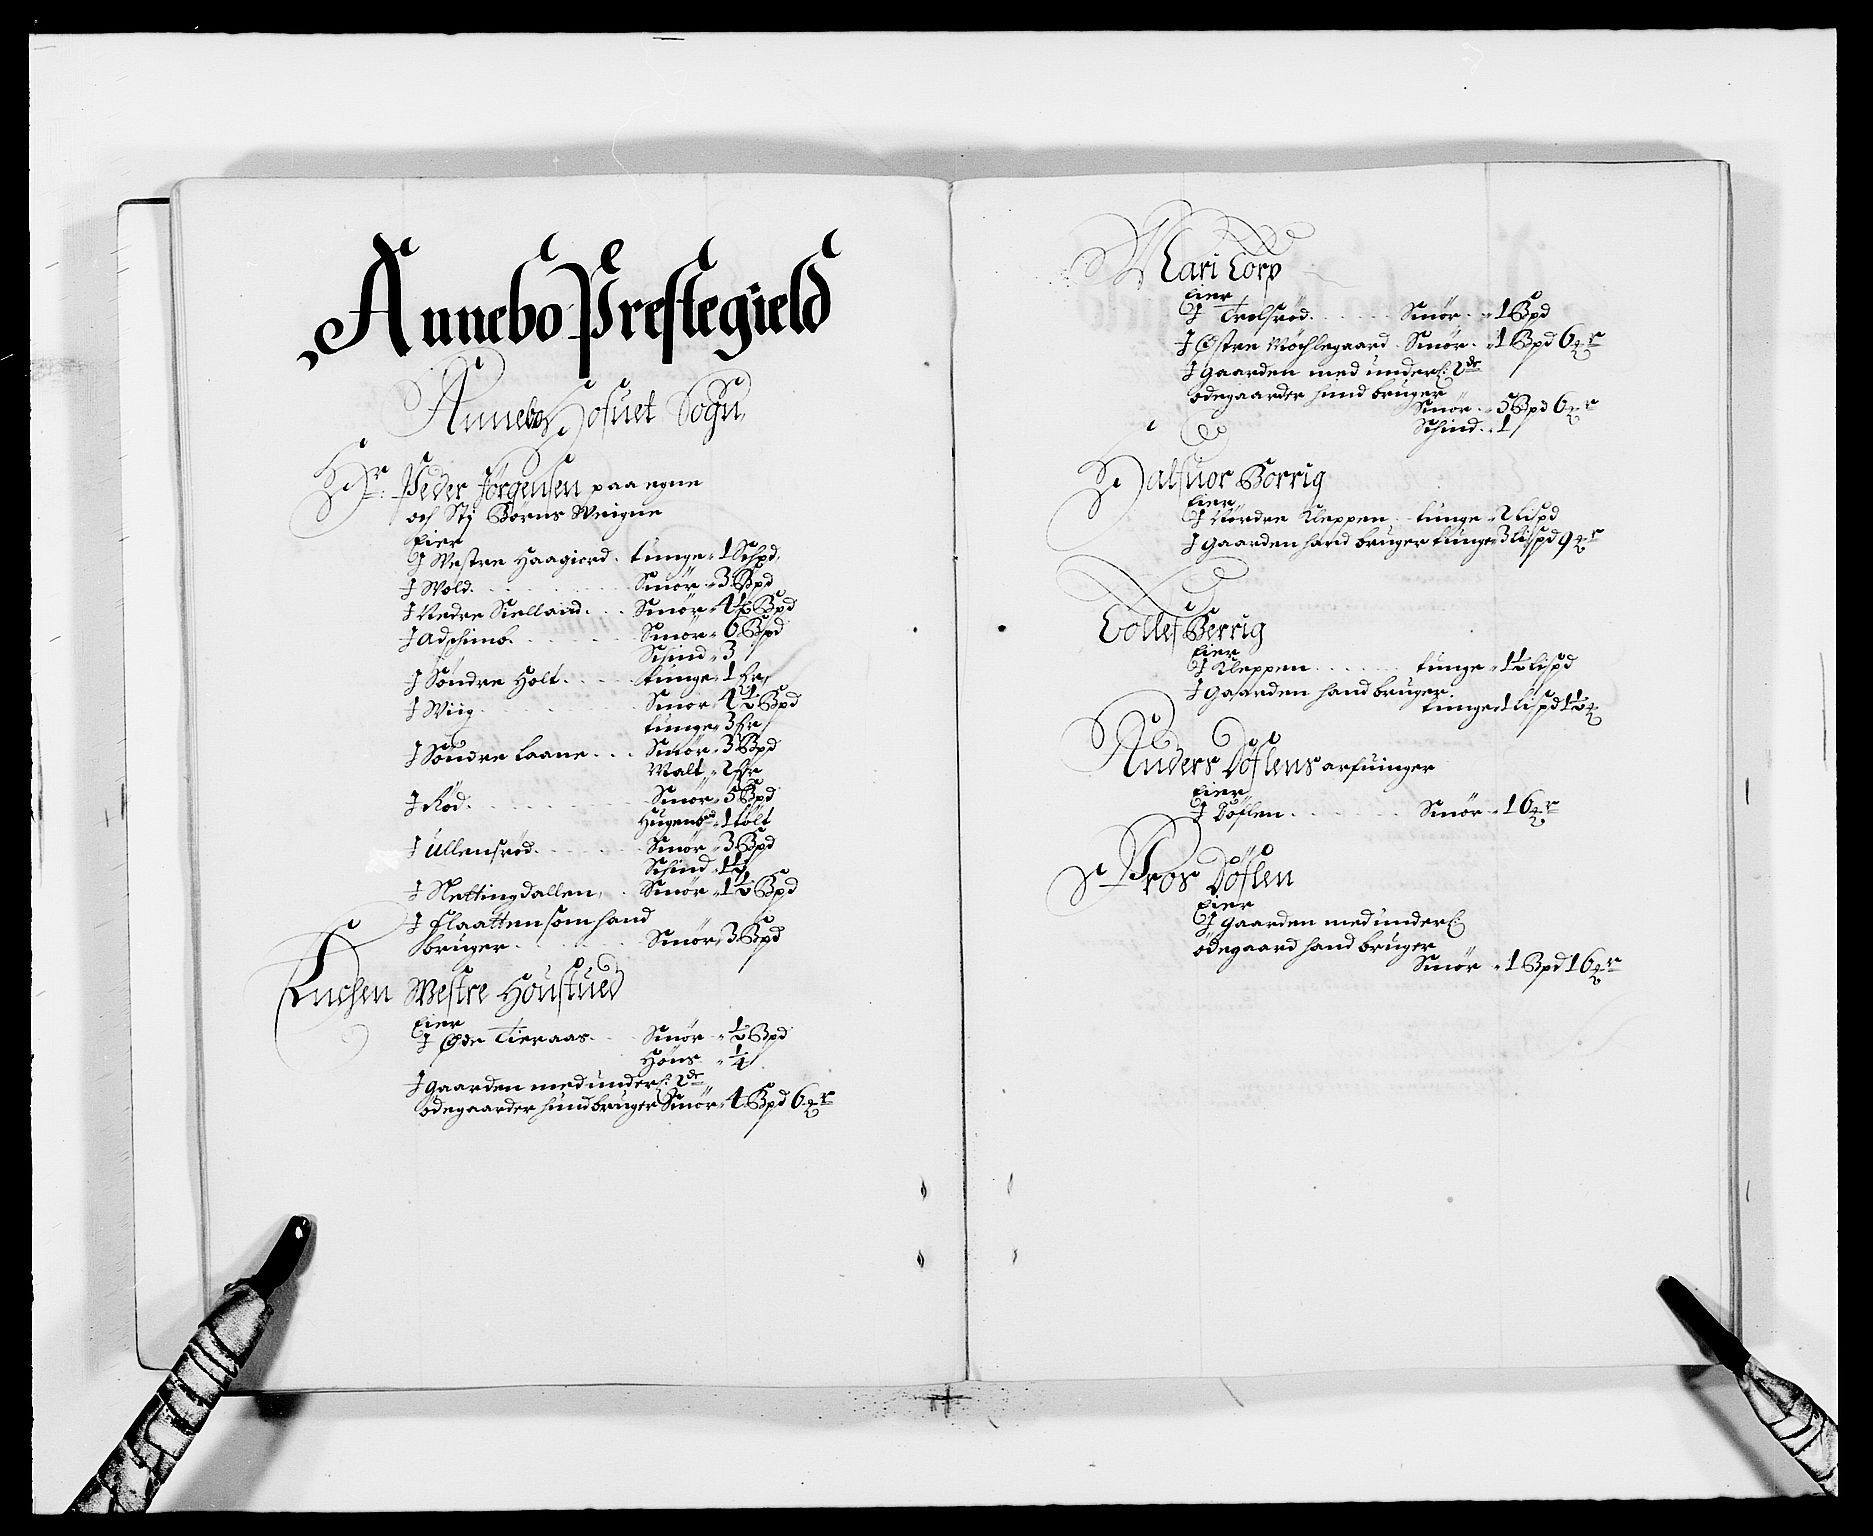 Annebo Prestegield
Annebo Hofuet Sogn
Hr: Peder Jörgensen paa egne
och Stj Börns Weigne
Eier
J Westre Haagiord . tunge „ 1 Schpd
J Wold . . . Smör „ 3 Bpd
J Nedre Sielland . . . Smör „ 4½ Bpd
J Adschimb . . . Smör „ 6 Bpd
Schind „ 3
J Söndre Holt . . . tunge „ 1 Fr
J Wiig . . . Smör „ 4½ Bpd
tunge „ 3 Fr
J Söndre Laane . . . Smör „ 3 Bpd
Malt „ 2 Fr
J Röd . . . Smör „ 5 Bpd
Hugens „ 1 tolt
J Ullensröd . . . Smör „ 3 Bpd
Schind „ 1½
J Nettingdallen . . Smör „ 1½ Bpd
J Flaatten som hand
bruger . . . Smör „ 3 Bpd
Enchen Westre Houfued
Eier
J Öde Tieraas . . Smör „ ½ Bpd
Höns „ ¼
J gaarden med underl: 2de
ödegaarder hund bruger Smör „ 4 Bpd 6 mr
Mari Torp
Eier
J Trolsröd . . . Smör „ 1 Bpd
J Östre Möchlegaard . Smör „ 1 Bpd 6 mr
J gaarden med underl: 2de
ödegaarder hund bruger
Smör „ 5 Bpd 6 mr
Schind „ 1
Halfuor Borrig
Eier
J Nordre Kleppen . . tunge „ 2 Lispd
J gaarden hand bruger tunge 3 Lispd 9 mr
Tollef Berrig
Eier
J Kleppen . . . tunge „ 1½ Lispd
J gaarden hand bruger .
tunge „ 1 Lispd 1½ m
Anders Döflens arfuinger
Eier
J Döflen . . . Smör „ 16 mr
Pros Döflen
Eier
J gaarden med underl:
ödegaard hand bruger
Smör „ 1 Bpd 16 mr